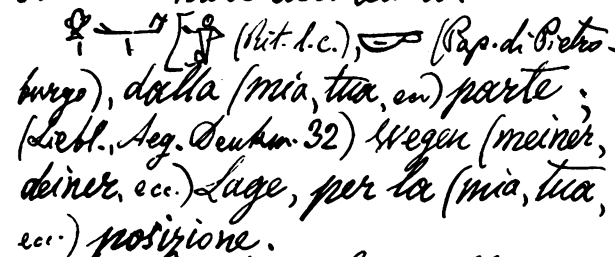 (Rit. l.c.), (Pap. di Pietro-
burgo), dalla (mia, tua, ecc) parte;
(Liebl., Aeg. Denkm. 32) wegen (meiner,
deiner, ecc.) Lage, per la (mia, tua,
ecc.) posizione.